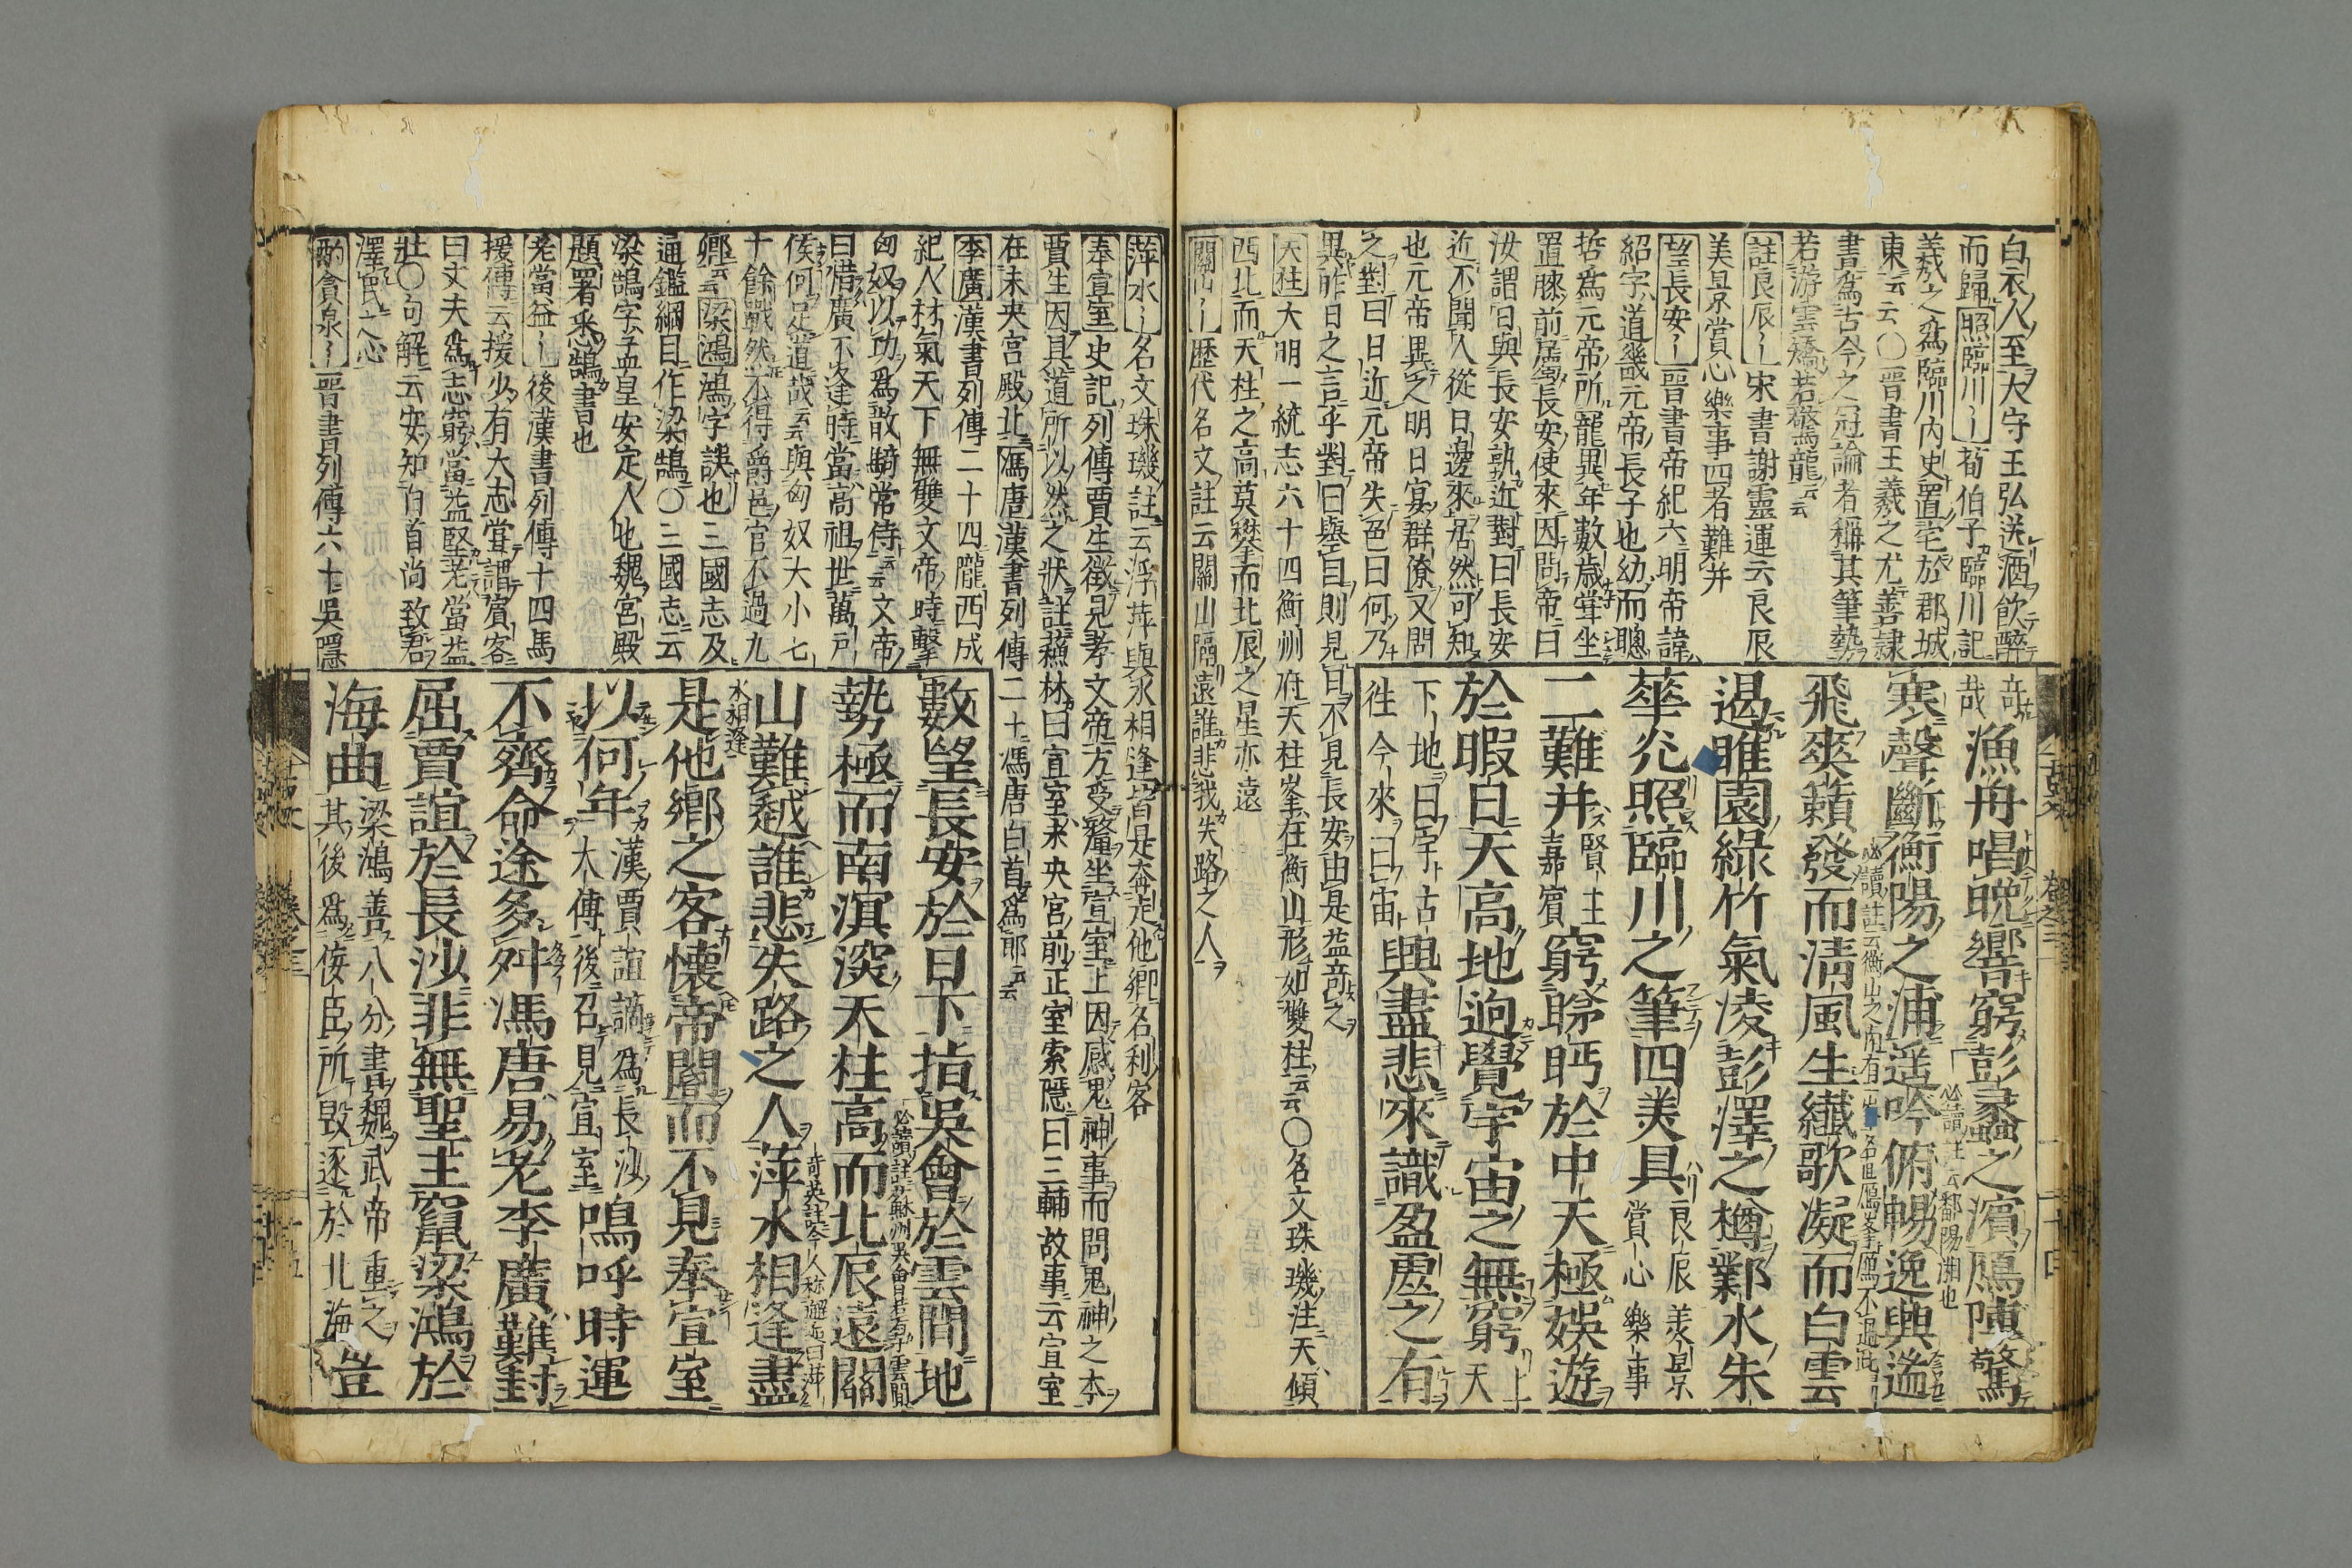 白衣人至大守王弘送酒飲醉
而歸照臨川〻荀伯子臨川記
羲之爲臨川內史置宅於郡城
東云云〇晋書王羲之尤善隸
書爲古今之冠論者稱其筆勢
若游雲矯若驚龍云云
註良辰〻宋書謝靈運云良辰
美景賞心樂事四者難并
望長安〻晋書帝紀六明帝諱
紹字道畿元帝長子也幼而聰
哲爲元帝所寵異年數歲甞坐
置膝前屬長安使來因問帝曰
汝謂日與長安孰近對曰長安
近不聞人從日邊來居然可知
也元帝異之明日宴群僚又問
之對曰日近元帝失色曰何乃
異昨日之言乎對曰舉目則見日不見長安由是益竒之
天柱大明一統志六十四衡州府天柱峯在衡山形如雙柱云云〇名文珠璣注天傾
西北而天柱之高莫攀而北辰之星亦遠
關山〻歷代名文註云關山隔遠誰悲我失路之人
竒哉漁舟唱晚響窮彭蠡之濱鴈陣驚
寒聲斷衡陽之浦遥吟俯暢逸興遄
飛爽籟發而淸風生纎歌凝而白雲
遏睢園綠竹氣凌彭澤之樽鄴水朱
華光照臨川之筆四美具良辰美景賞心樂事
二難并賢主嘉賓窮睇眄於中天極娛遊
於暇日天高地迥覺宇宙之無窮上天
下地曰宇古往今來曰宙興盡悲來識盈虛之有
萍水〻名文珠璣註云浮萍與水相逢皆是奔走他鄉名利客
奉宣室史記列傳賈生徵見孝文帝方受釐坐宣室上因感鬼神事而問鬼神之本
賈生因具道所以然之狀註蘇林曰宣室未央宮前正室索隱曰三輔故事云宣室
在未央宮殿北馮唐漢書列傳二十馮唐白首爲郎云云
李廣漢書列傳二十四隴西成
紀人材氣天下無雙文帝時擊
匈奴以功爲散騎常侍云云文帝
曰惜廣不逢時當高祖世萬戶
侯何足道哉云云與匈奴大小七
十餘戰然不得爵邑官不過九
卿云云梁鴻鴻字誤也三國志及
通鑑綱目作梁鵠〇三國志云
梁鵠字孟皇安定人也魏宮殿
題署悉鵠書也
老當益〻後漢書列傳十四馬
援傳云援少有大志甞謂賓客
曰丈夫爲志窮當益堅老當益
壯〇句解云安知白首尚致君
澤民之心
酌貪泉〻晋書列傳六十吳隱
數望長安於日下指吳會於雲間地
勢極而南溟深天柱高而北辰遠關
山難越誰悲失路之人萍水相逢盡
是他鄉之客懷帝閽而不見奉宣室
以何年漢賈誼謫爲長沙大傅後召見宣室嗚呼時運
不齊命途多舛馮唐易老李廣難封
屈賈誼於長沙非無聖主竄梁鴻於
海曲梁鴻善八分書魏武帝重之其後爲侫臣所毀逐於北海豈